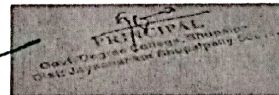 PRINCIPAL
Govt. Degree College, Bhupalpally
Dist: Jayashankar Bhupalpally